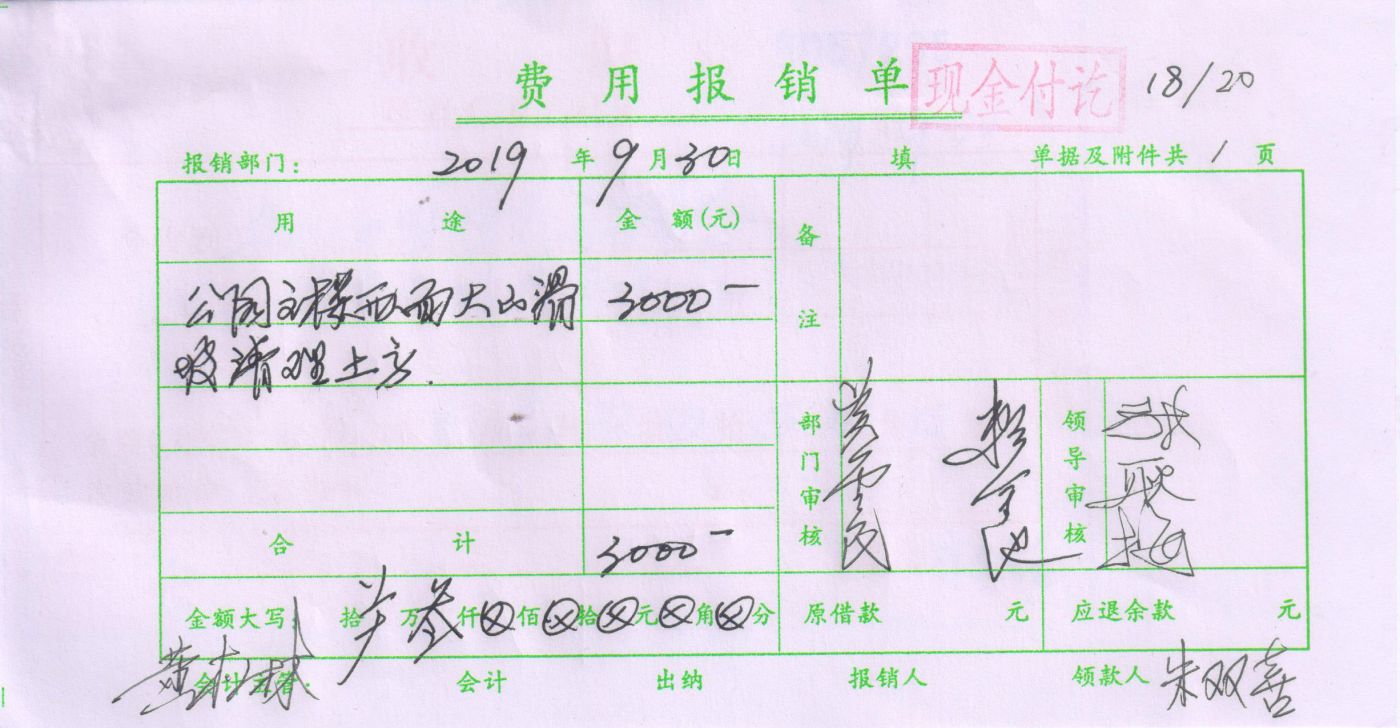 费用报销单 现金付讫 18/20
报销部门: 2019年9月30日 填 单据及附件共1页
用途 金额(元) 备注
公园主楼西面大山滑 3000-
坡清理土方.
部门审核 领导审核
合计 3000-
金额大写: 拾 万叁仟⊗佰⊗拾⊗元⊗角⊗分 原借款 元 应退余款 元
会计主管: 会计 出纳 报销人 领款人 朱双喜